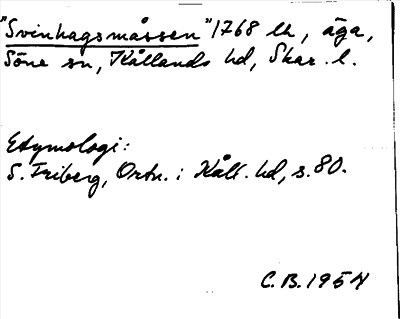 "Svinhagsmåssen" 1768 lh, äga,
Söne sn, Kållands hd, Skar. l.
Etymologi:
S. Friberg, Ortn. i Kåll. hd, s. 80.
C.B. 1954